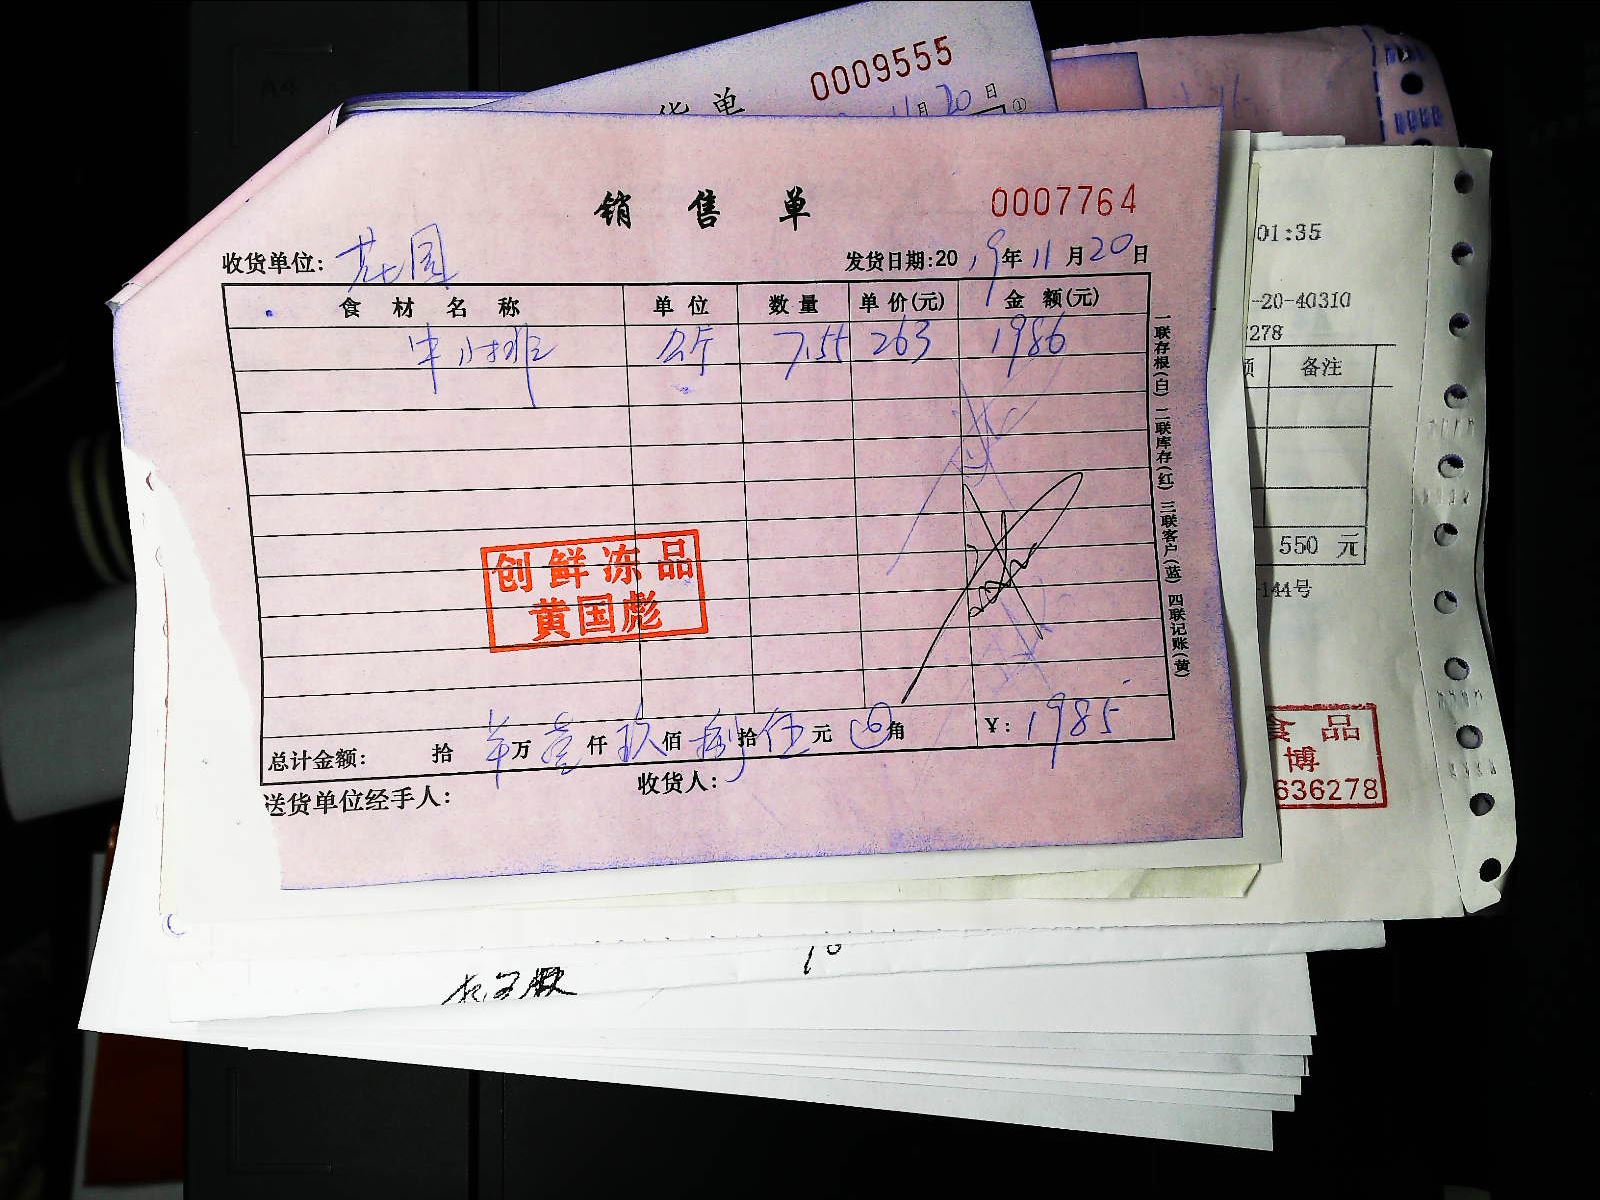 0009555
货 单
11月20日 ①
销 售 单
0007764
收货单位: 花园
发货日期:2019年11月20日
食 材 名 称 单 位 数 量 单 价(元) 金 额(元)
牛小排 公斤 7.55 263 1986
一联存根(白) 二联库存(红) 三联客户(蓝) 四联记账(黄)
创鲜冻品
黄国彪
总计金额: 拾 万 壹仟 玖佰 捌拾 伍元 角 ¥: 1985
送货单位经手人:
收货人:
01:35
-20-40310
278
额 备注
550 元
-144号
食 品
博
636278
10